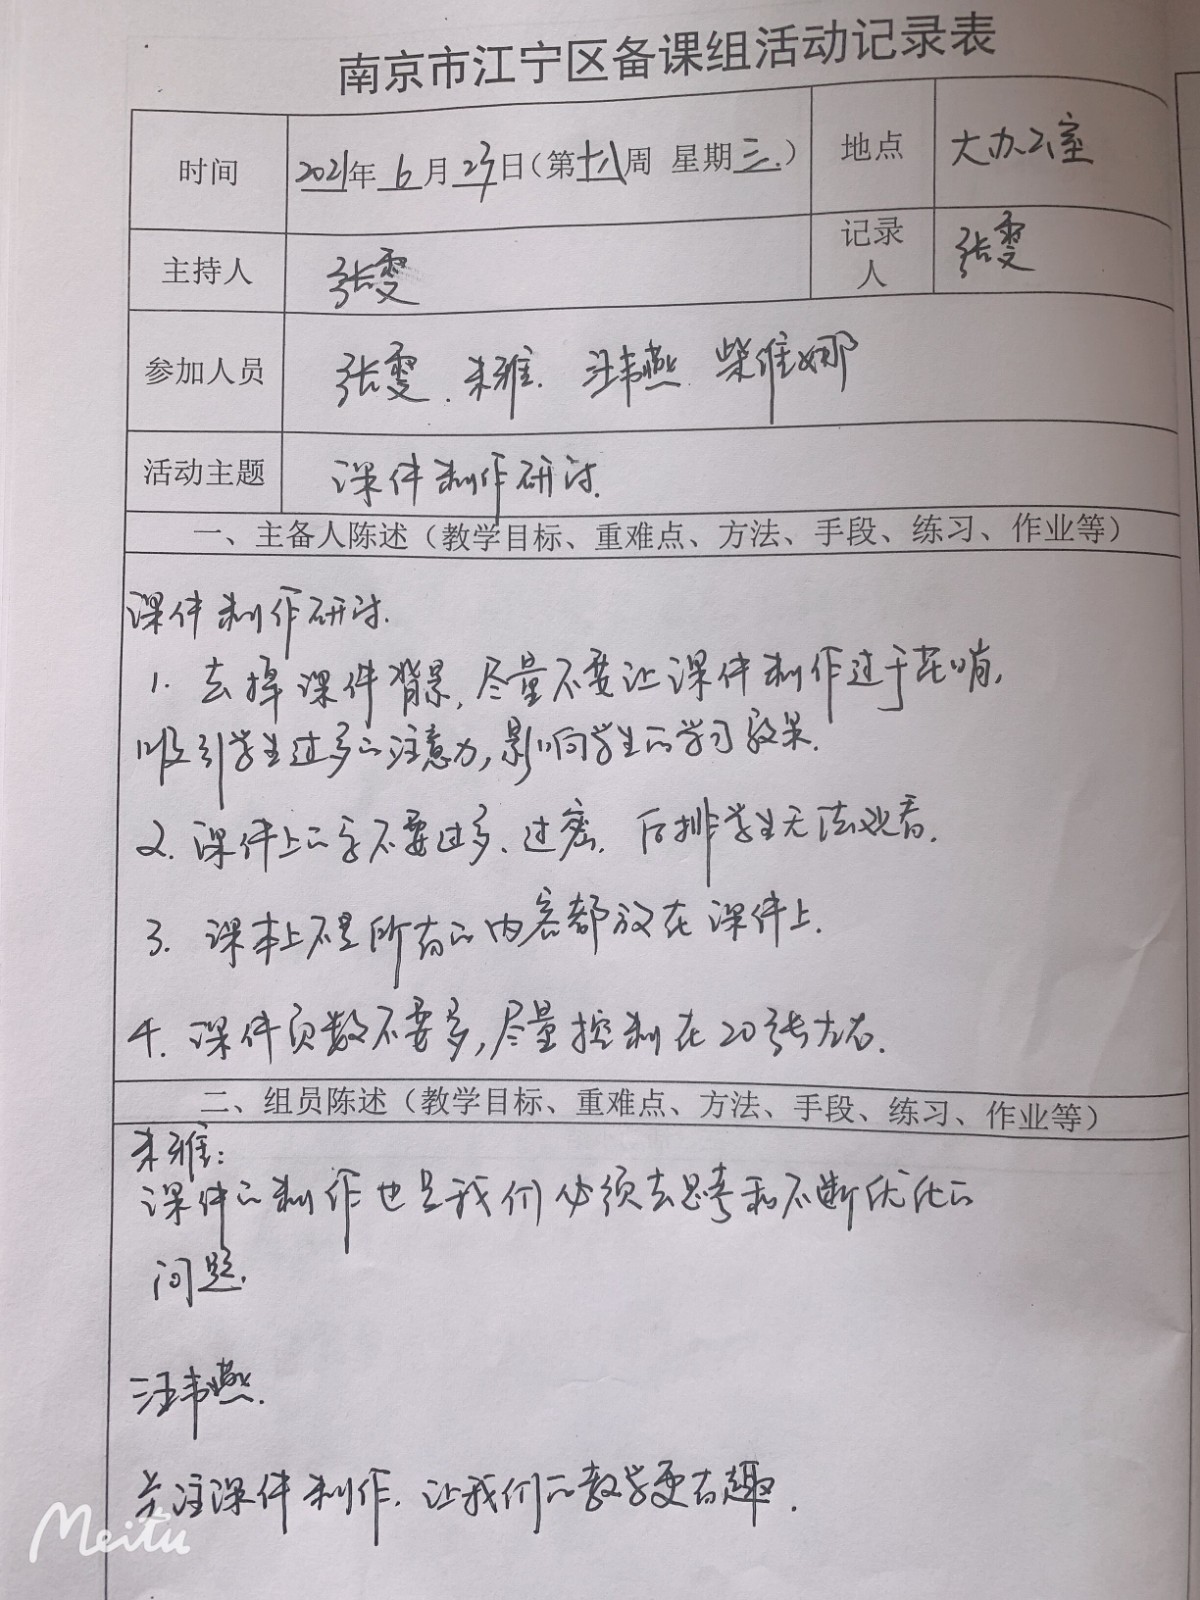 南京市江宁区备课组活动记录表
时间 2021年 6月 23日(第十八周 星期三.) 地点 大办公室
主持人 张雯 记录人 张雯
参加人员 张雯.朱雅.汪韦燕.柴维娜
活动主题 课件制作研讨.
一、主备人陈述（教学目标、重难点、方法、手段、练习、作业等）
课件制作研讨.
1. 去掉课件背景,尽量不要让课件制作过于花哨,
吸引学生过多的注意力,影响学生的学习效果.
2. 课件上的字不要过多、过密. 后排学生无法观看.
3. 课本上不是所有的内容都放在课件上.
4. 课件页数不要多,尽量控制在20张左右.
二、组员陈述（教学目标、重难点、方法、手段、练习、作业等）
朱雅:
课件的制作也是我们必须去思考和不断优化的
问题.
汪韦燕.
关注课件制作.让我们的教学更有趣.
Meitu